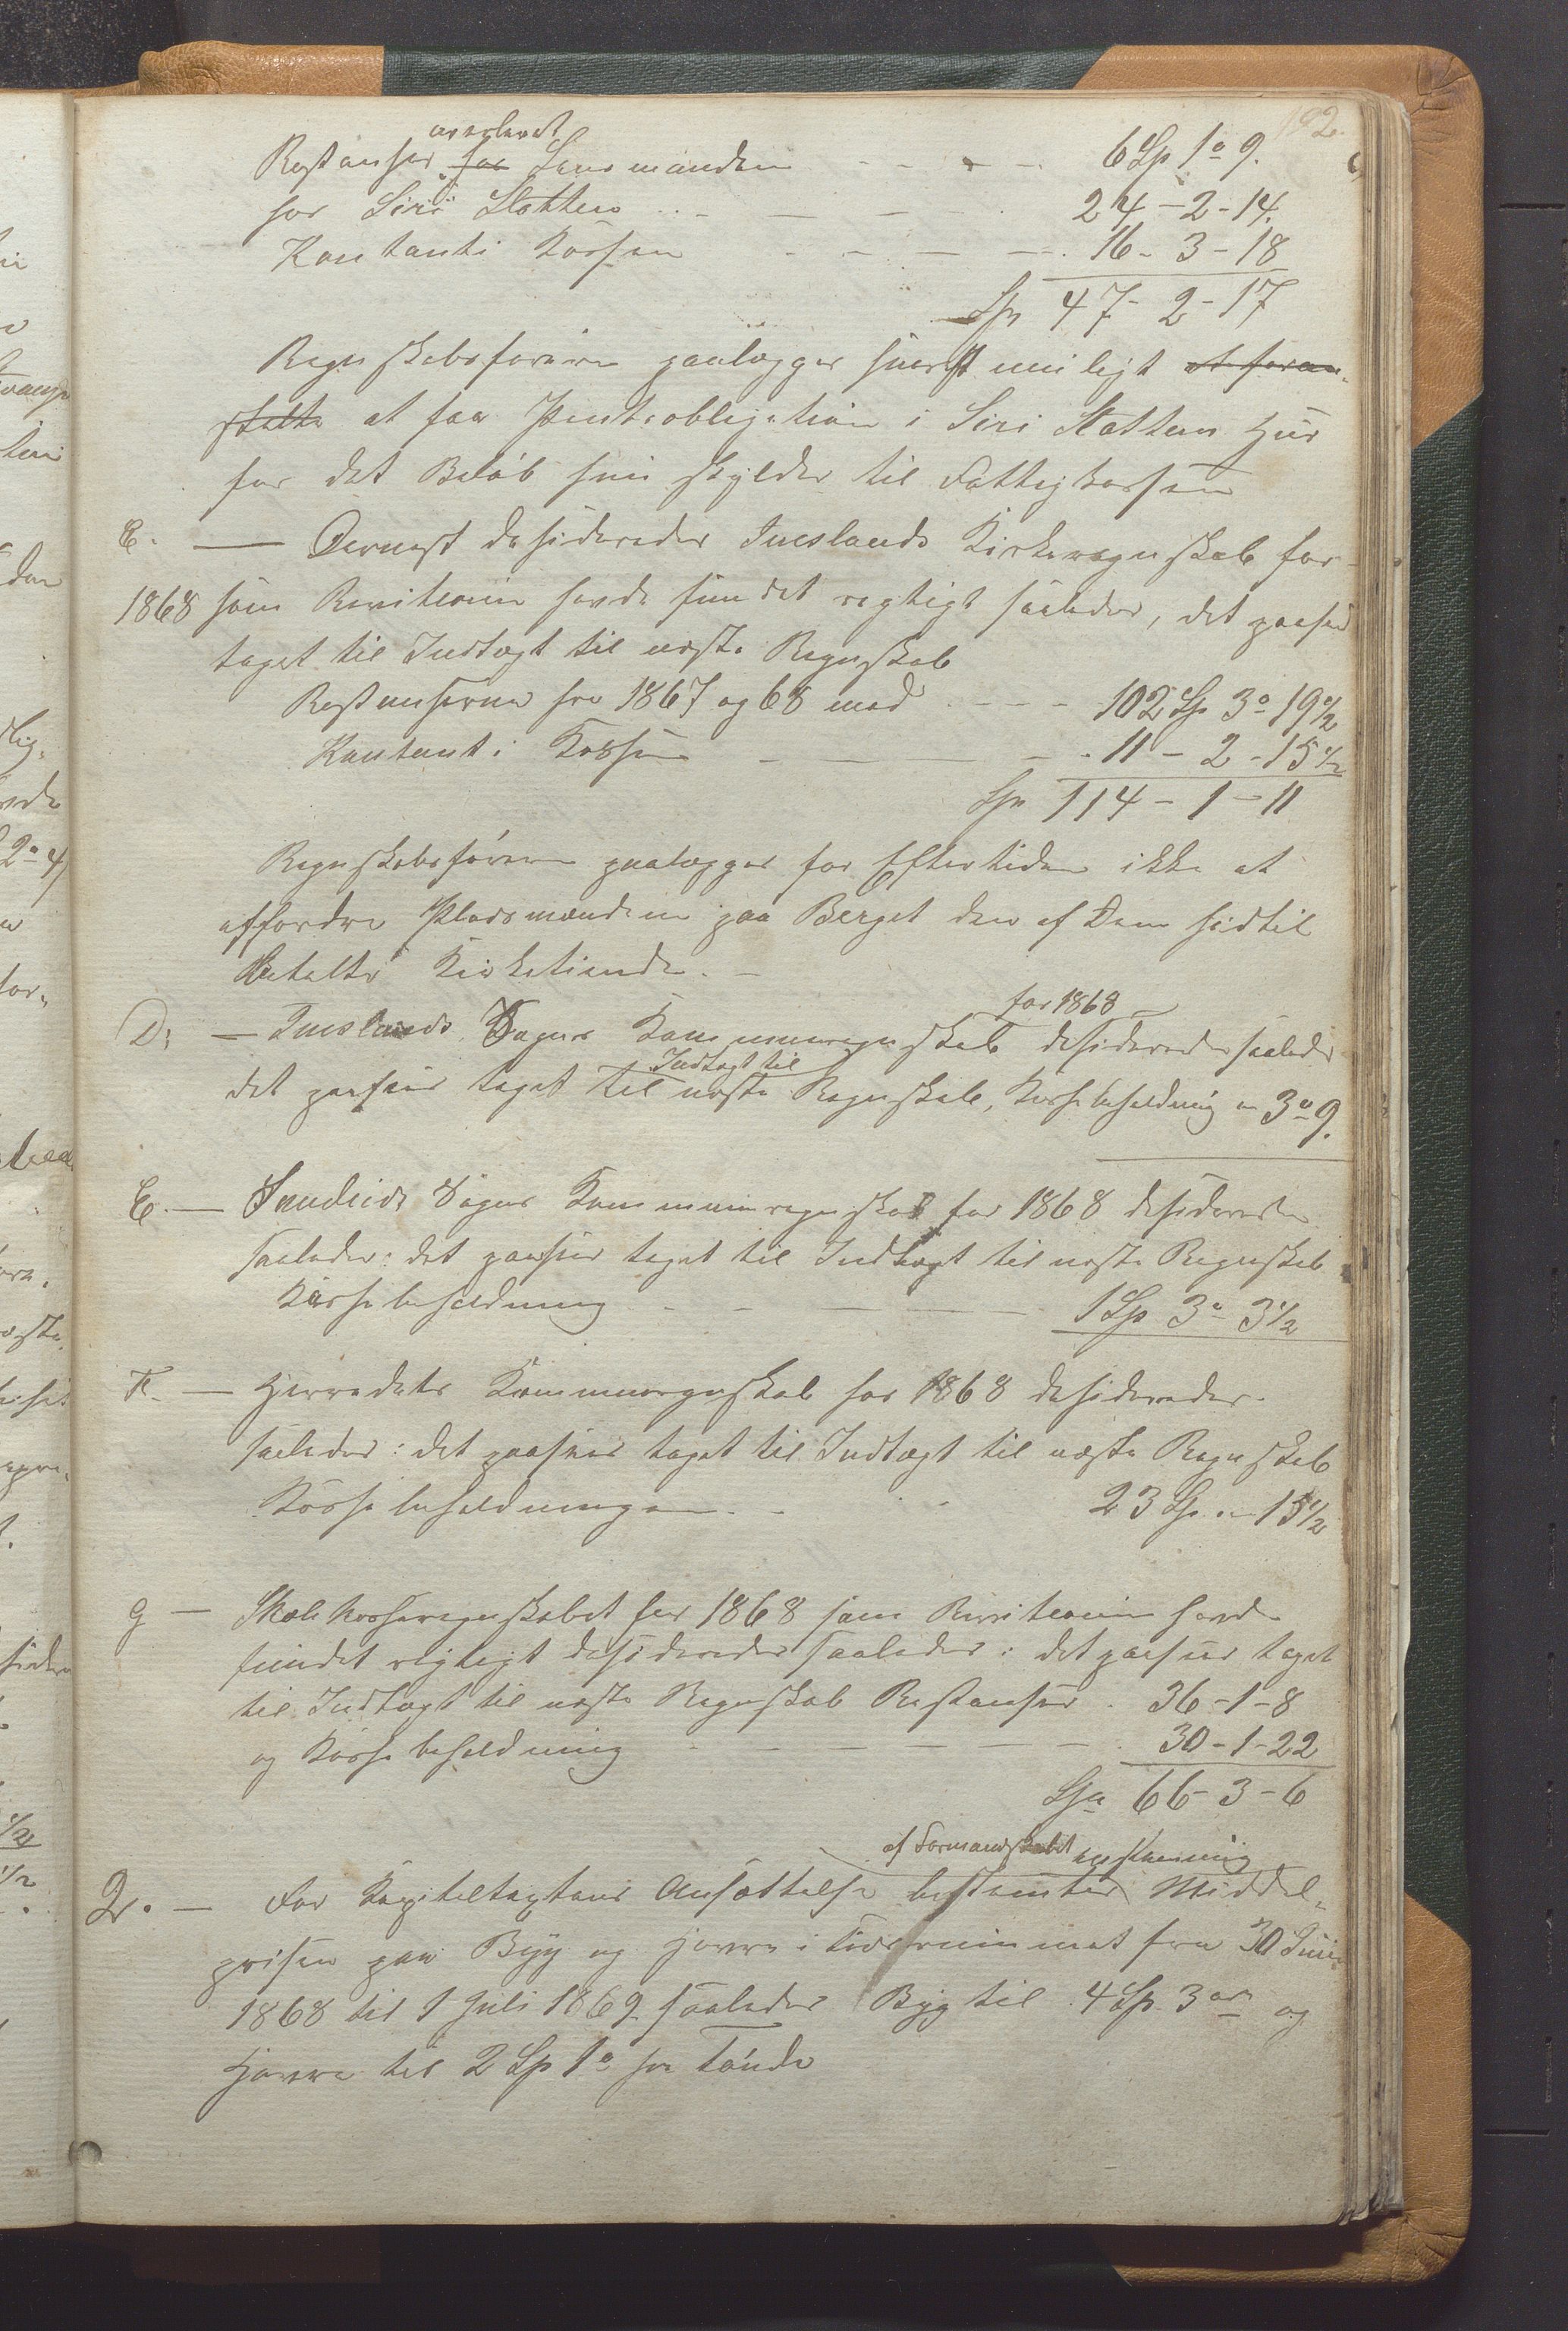 192.
overlevert
Restanser for Lensmanden - - - - 6 Sp 1o 9.
hos Siri Slotten - - - - 24 - 2 - 14.
Kontant i Kassen - - - - 16 - 3 - 18
Spr 47 - 2 - 17
Regnskabsføreren paalægges snarest muligt at foran-
stalte at faa Panteobligation i Siri Slottens Huus
for det Beløb hun skylder til Fattigkassen
C. — Dernæst desideredes Lueslands Kirkeregnskab for
1868 som Revisionen havde fundet rigtigt saaledes, det paasees
taget til Indtægt til næste Regnskab
Restanserne fra 1867 og 68 med - - - 102 Sp 3o 19 1/2
Kontant i Kassen - - - 11 - 2 - 15 1/2
Spr 114 - 1 - 11
Regnskabsføreren paalægges for Eftertiden ikke at
affordre Pladsmændene paa Berget den af Dem hidtil
betalte Kirketiende. -
for 1868
D: — Lueslands Sogns Kommuneregnskab desideredes saaledes
Indtægt til
det paasees taget til næste Regnskab, Kassebeholdning - 3o 9.
E. — Sandeids Sogns Kommuneregnskab for 1868 desideredes
saaledes: det paasees taget til Indtægt til næste Regnskab
Kassebeholdning - - - 1 Sp 3o 3 1/2
F. — Herredets Kommuneregnskab for 1868 desideredes
saaledes: det paasees taget til Indtægt til næste Regnskab
Kassebeholdningen - - 23 Sp. - 15 1/2
G — Skolekasseregnskabet for 1868 som Revisionen havde
fundet rigtigt desideredes saaledes: det paasees taget
til Indtægt til næste Regnskab Restanser . 36 - 1 - 8
og Kassebeholdning - - - - 30 - 1 - 22
Spr 66 - 3 - 6
af Formandskabet
2. — For Kapiteltaxtens Ansættelse bestemtes Middel-
prisen paa Byg og Havre i Tidsrummet fra 30 Juni
1868 til 1 Juli 1869 saaledes Byg til 4 Sp. 3 ort og
Havre til 2 Sp 1o pr Tønde